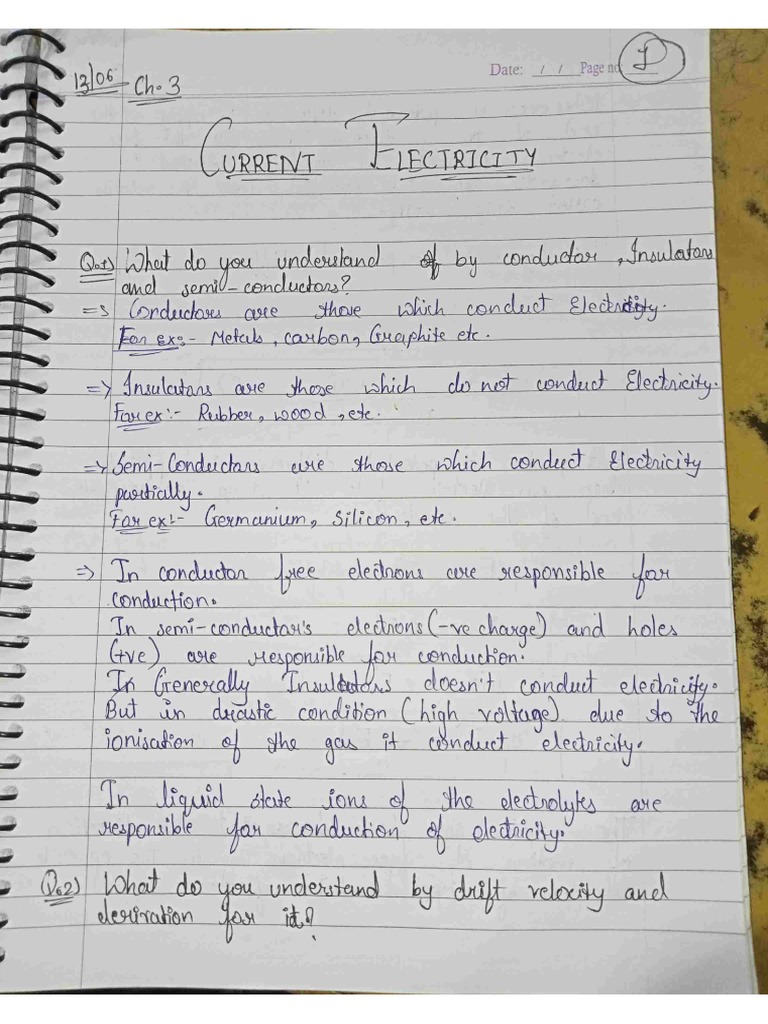 13/06
Ch. 3
Date: __/__/__ Page no. 1
CURRENT ELECTRICITY
Q.1) What do you understand by conductor, Insulators
and semi-conductors?
=> Conductors are those which conduct Electricity.
For ex:- Metals, carbon, Graphite etc.
=> Insulators are those which do not conduct Electricity.
For ex:- Rubber, wood, etc.
=> Semi-Conductors are those which conduct Electricity
partially.
For ex:- Germanium, Silicon, etc.
=> In conductor free electrons are responsible for
conduction.
In semi-conductor's electrons (-ve charge) and holes
(+ve) are responsible for conduction.
In Generally Insulators doesn't conduct electricity.
But in drastic condition (high voltage) due to the
ionisation of the gas it conduct electricity.
In liquid state ions of the electrolytes are
responsible for conduction of electricity.
Q.2) What do you understand by drift velocity and
derivation for it?